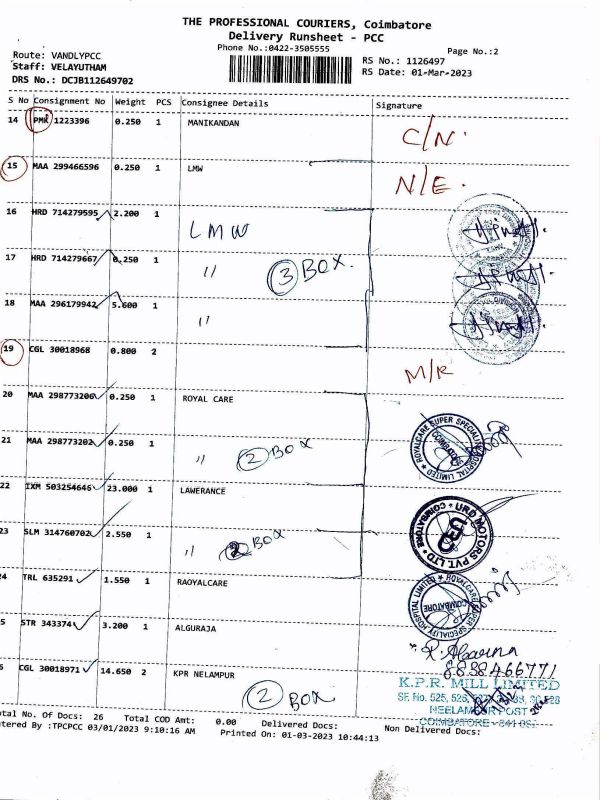 THE PROFESSIONAL COURIERS, Coimbatore
Delivery Runsheet - PCC
Phone No.:0422-3505555
Page No.:2
Route: VANDLYPCC
Staff: VELAYUTHAM
DRS No.: DCJB112649702
RS No.: 1126497
RS Date: 01-Mar-2023
S No Consignment No Weight PCS Consignee Details Signature
14 PMK 1223396 0.250 1 MANIKANDAN C/N.
15 MAA 299466596 0.250 1 LMW N/E.
16 HRD 714279595 2.200 1 LMW
17 HRD 714279667 0.250 1 " 3 BOX.
18 MAA 296179942 5.600 1 "
19 CGL 30018968 0.800 2 M/R
20 MAA 298773206 0.250 1 ROYAL CARE
21 MAA 298773202 0.250 1 " 2 BOX
ROYALCARE SUPER SPECIALITY HOSPITAL LIMITED
COIMBATORE
22 IXM 503254646 23.000 1 LAWERANCE
23 SLM 314760702 2.550 1 " 2 BOX
URD MOTORS PVT. LTD
COIMBATORE
24 TRL 635291 1.550 1 RAOYALCARE
COIMBATORE
5 STR 343374 3.200 1 ALGURAJA
8838466771
6 CGL 30018971 14.650 2 KPR NELAMPUR
2 BOX
K.P.R. MILL LIMITED
SF. No. 525, 526,
NEELAMBUR POST
COIMBATORE - 641
otal No. Of Docs: 26 Total COD Amt: 0.00 Delivered Docs: Non Delivered Docs:
ntered By :TPCPCC 03/01/2023 9:10:16 AM Printed On: 01-03-2023 10:44:13